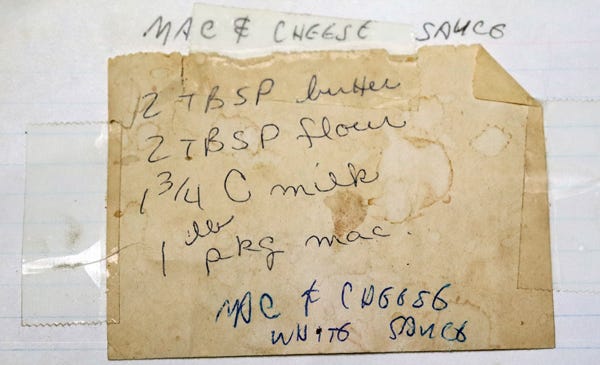 MAC & CHEESE SAUCE
2 TBSP butter
2 TBSP flour
1 3/4 C milk
1 lb pkg mac.
MAC & CHEESE
WHITE SAUCE